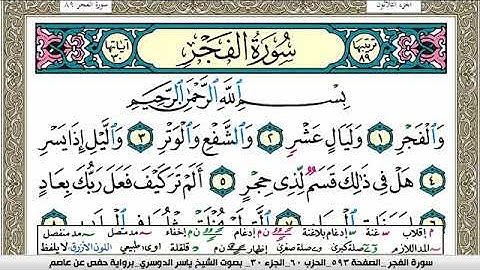 الجزء الثلاثون
سورة الفجر ٨٩
ترتيبها ٨٩
سُورَةُ الْفَجْرِ
آياتها ٣٠
بِسْمِ اللَّهِ الرَّحْمَٰنِ الرَّحِيمِ
وَالْفَجْرِ ١ وَلَيَالٍ عَشْرٍ ٢ وَالشَّفْعِ وَالْوَتْرِ ٣ وَاللَّيْلِ إِذَا يَسْرِ
٤ هَلْ فِي ذَٰلِكَ قَسَمٌ لِّذِي حِجْرٍ ٥ أَلَمْ تَرَ كَيْفَ فَعَلَ رَبُّكَ بِعَادٍ
م إقلاب غنة إدغام بلاغنة ن م إدغام إخفاء مد متصل مد منفصل
المد اللازم صلة كبرى صلة صغرى إظهار ن م قلقلة ا و ى طبيعي اللون الأزرق لا يلفظ
سورة الفجر _الصفحة ٥٩٣_ الحزب ٦٠_ الجزء ٣٠_ بصوت الشيخ ياسر الدوسري_ برواية حفص عن عاصم